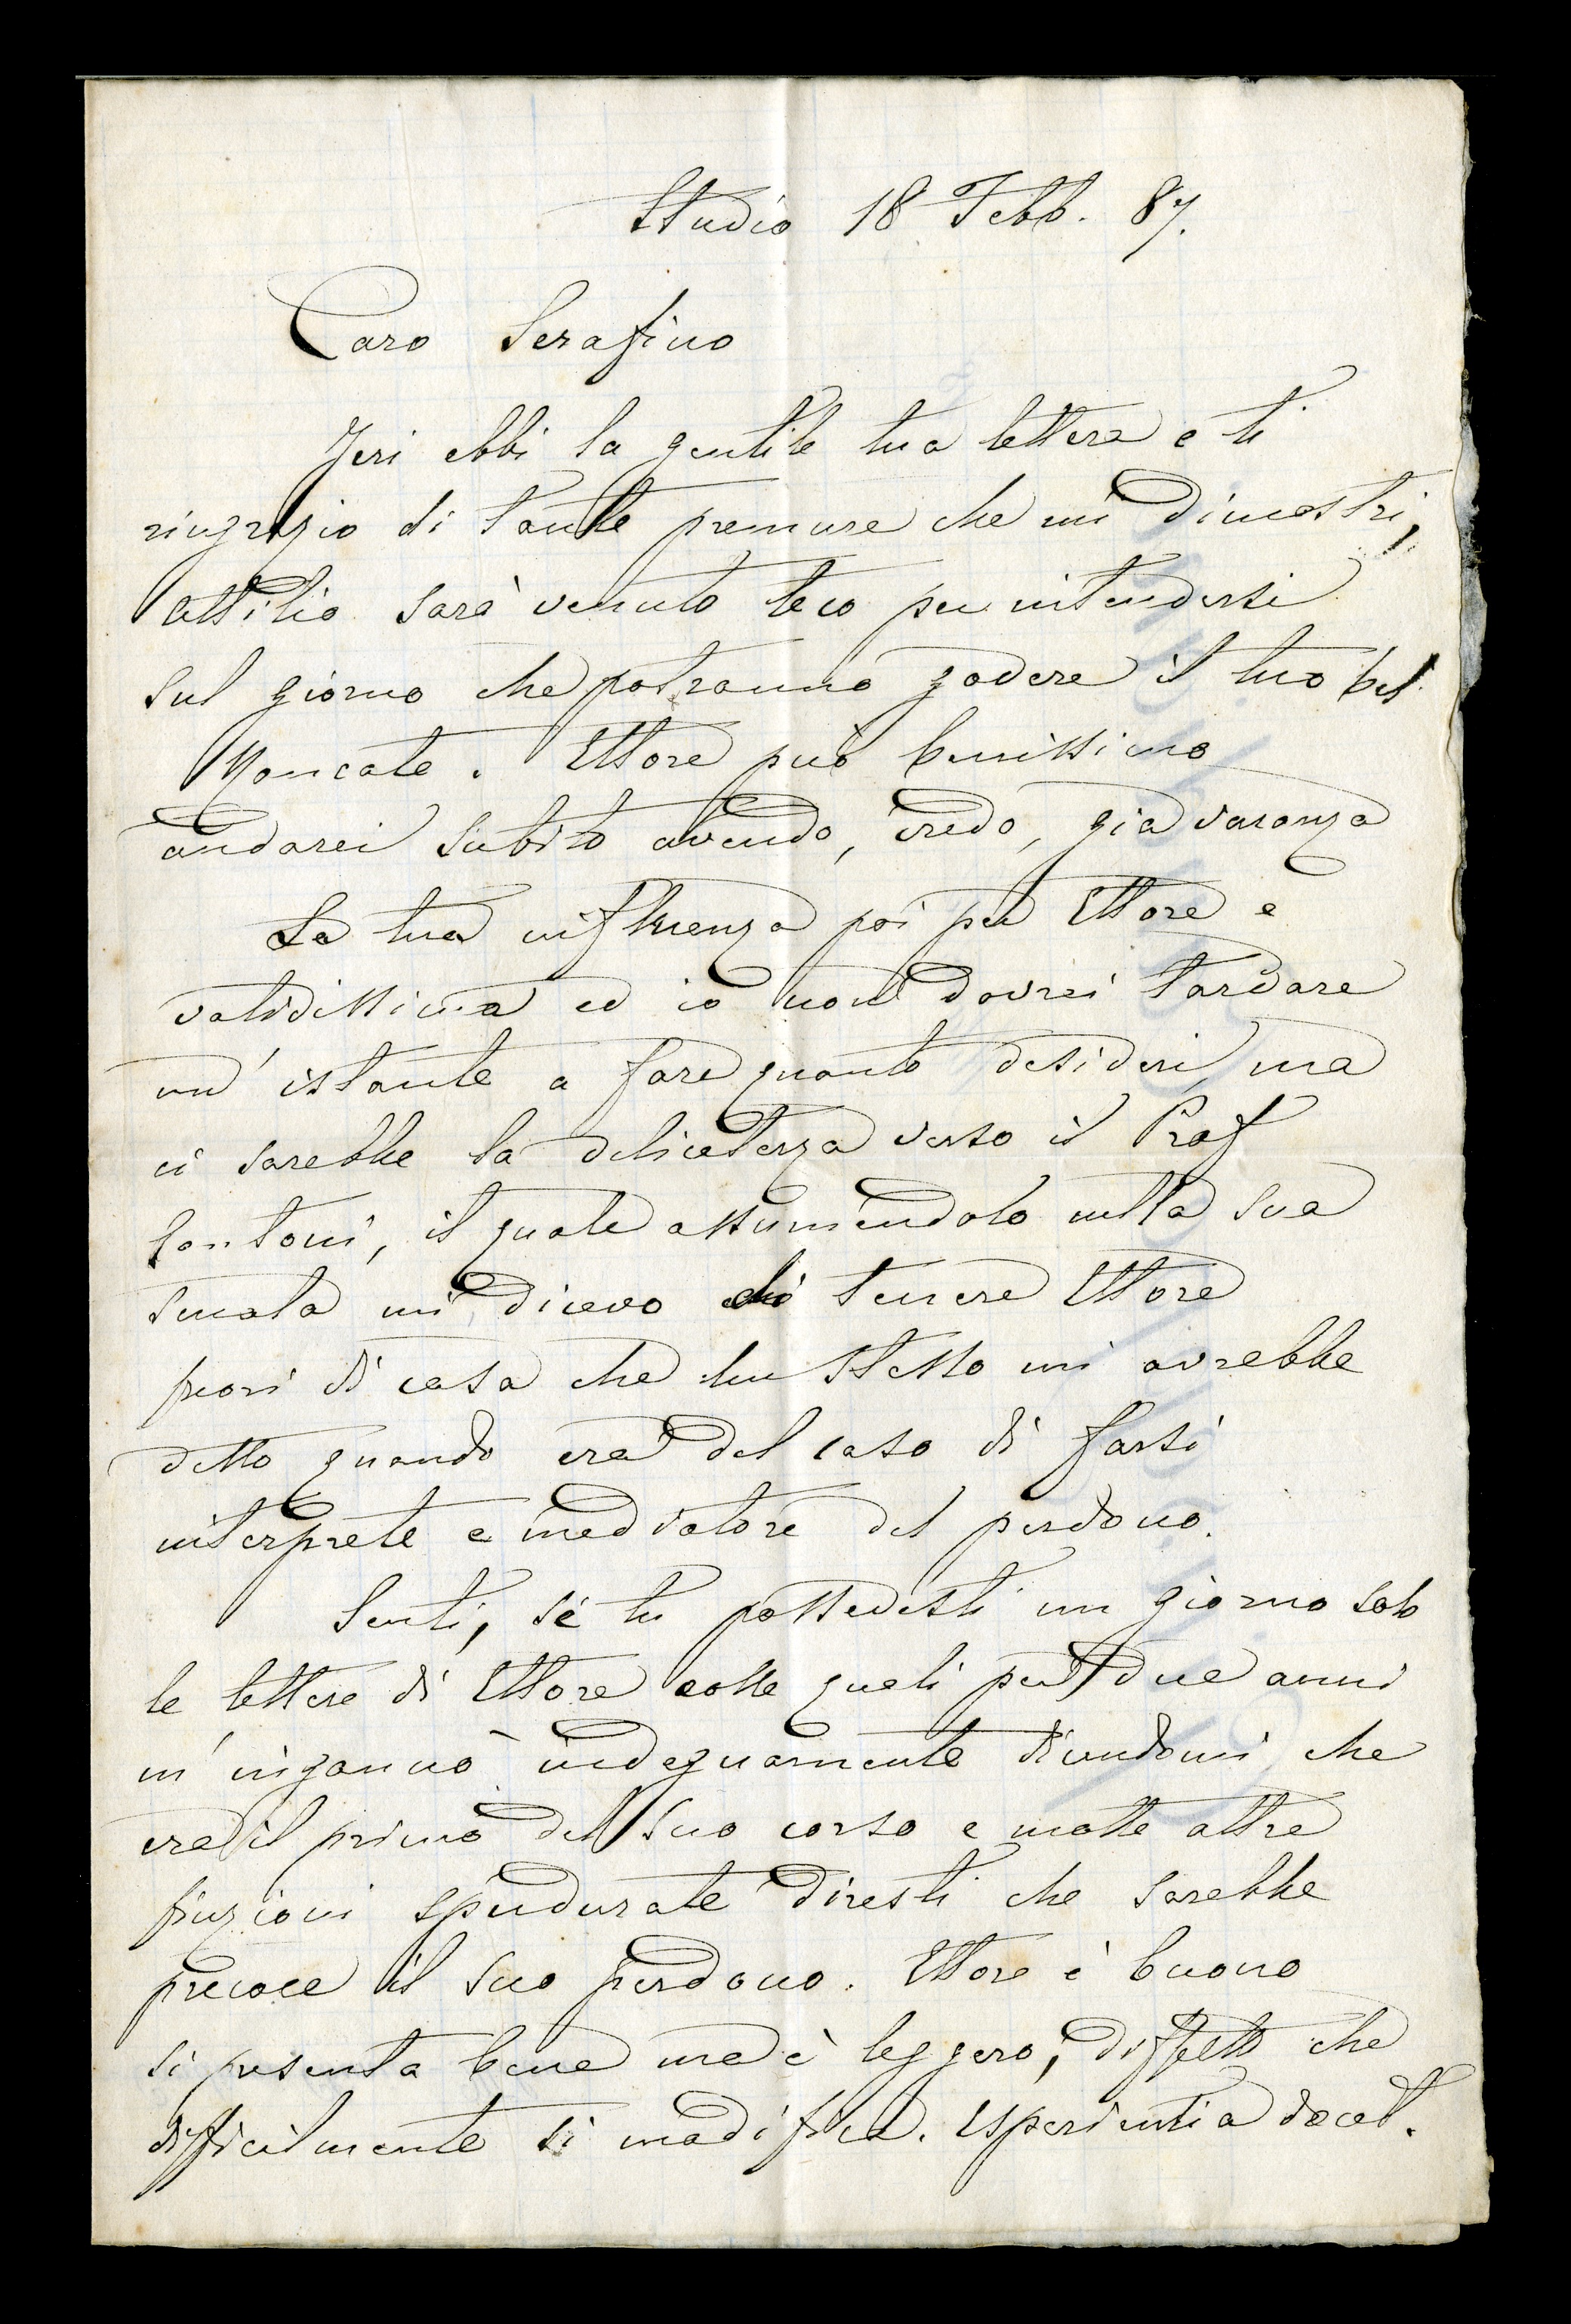 Studio 18 Febb. 87.
Caro Serafino
Jeri ebbi la gentile tua lettera e ti
ringrazio di tante premure che mi dimostri,
Attilio sarà venuto teco per intendersi
sul giorno che potranno godere il tuo bel
Moncate. Ettore può benissimo
andarci subito avendo, credo, già vacanza
La tua influenza poi per Ettore è
validissima ed io non dovrei tardare
un' istante a fare quanto desideri, ma
ci sarebbe la delicatezza verso il Prof
Cantoni, il quale assumendolo nella sua
scuola mi diceva di tenere Ettore
fuori di casa che lui stesso mi avrebbe
detto quando era del caso di farsi
interprete e mediatore del perdono.
Senti, se tu possedesti un giorno solo
le lettere di Ettore colle quali per due anni
m'ingannò indegnamente dicendomi che
era il primo del suo corso e molte altre
finzioni spudurate diresti che sarebbe
precoce il suo perdono. Ettore è buono
si presenta bene ma è leggero, diffetto che
difficilmente si modifica. Esperientia docet.